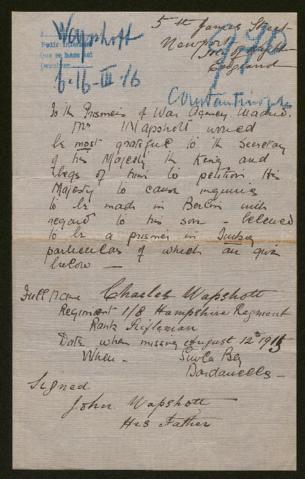 Wapshott
5 St James Street
Newport
Isle of Wight
England
6-16-III-16
Constantinople
To the Prisoners of War Agency Madrid.
Mr Wapshott would
be most grateful to the Secretary
of his Majesty the King and
begs of him to petition His
Majesty to cause inquiries
to be made in Berlin with
regard to his son - believed
to be a prisoner in Turkey
particulars of which are given
below —
Full Name Charles Wapshott
Regiment 1/8 Hampshire Regiment
Rank Rifleman
Date when missing August 12th 1915
Where - Suvla Bay
Dardanelles
Signed
John Wapshott
His Father